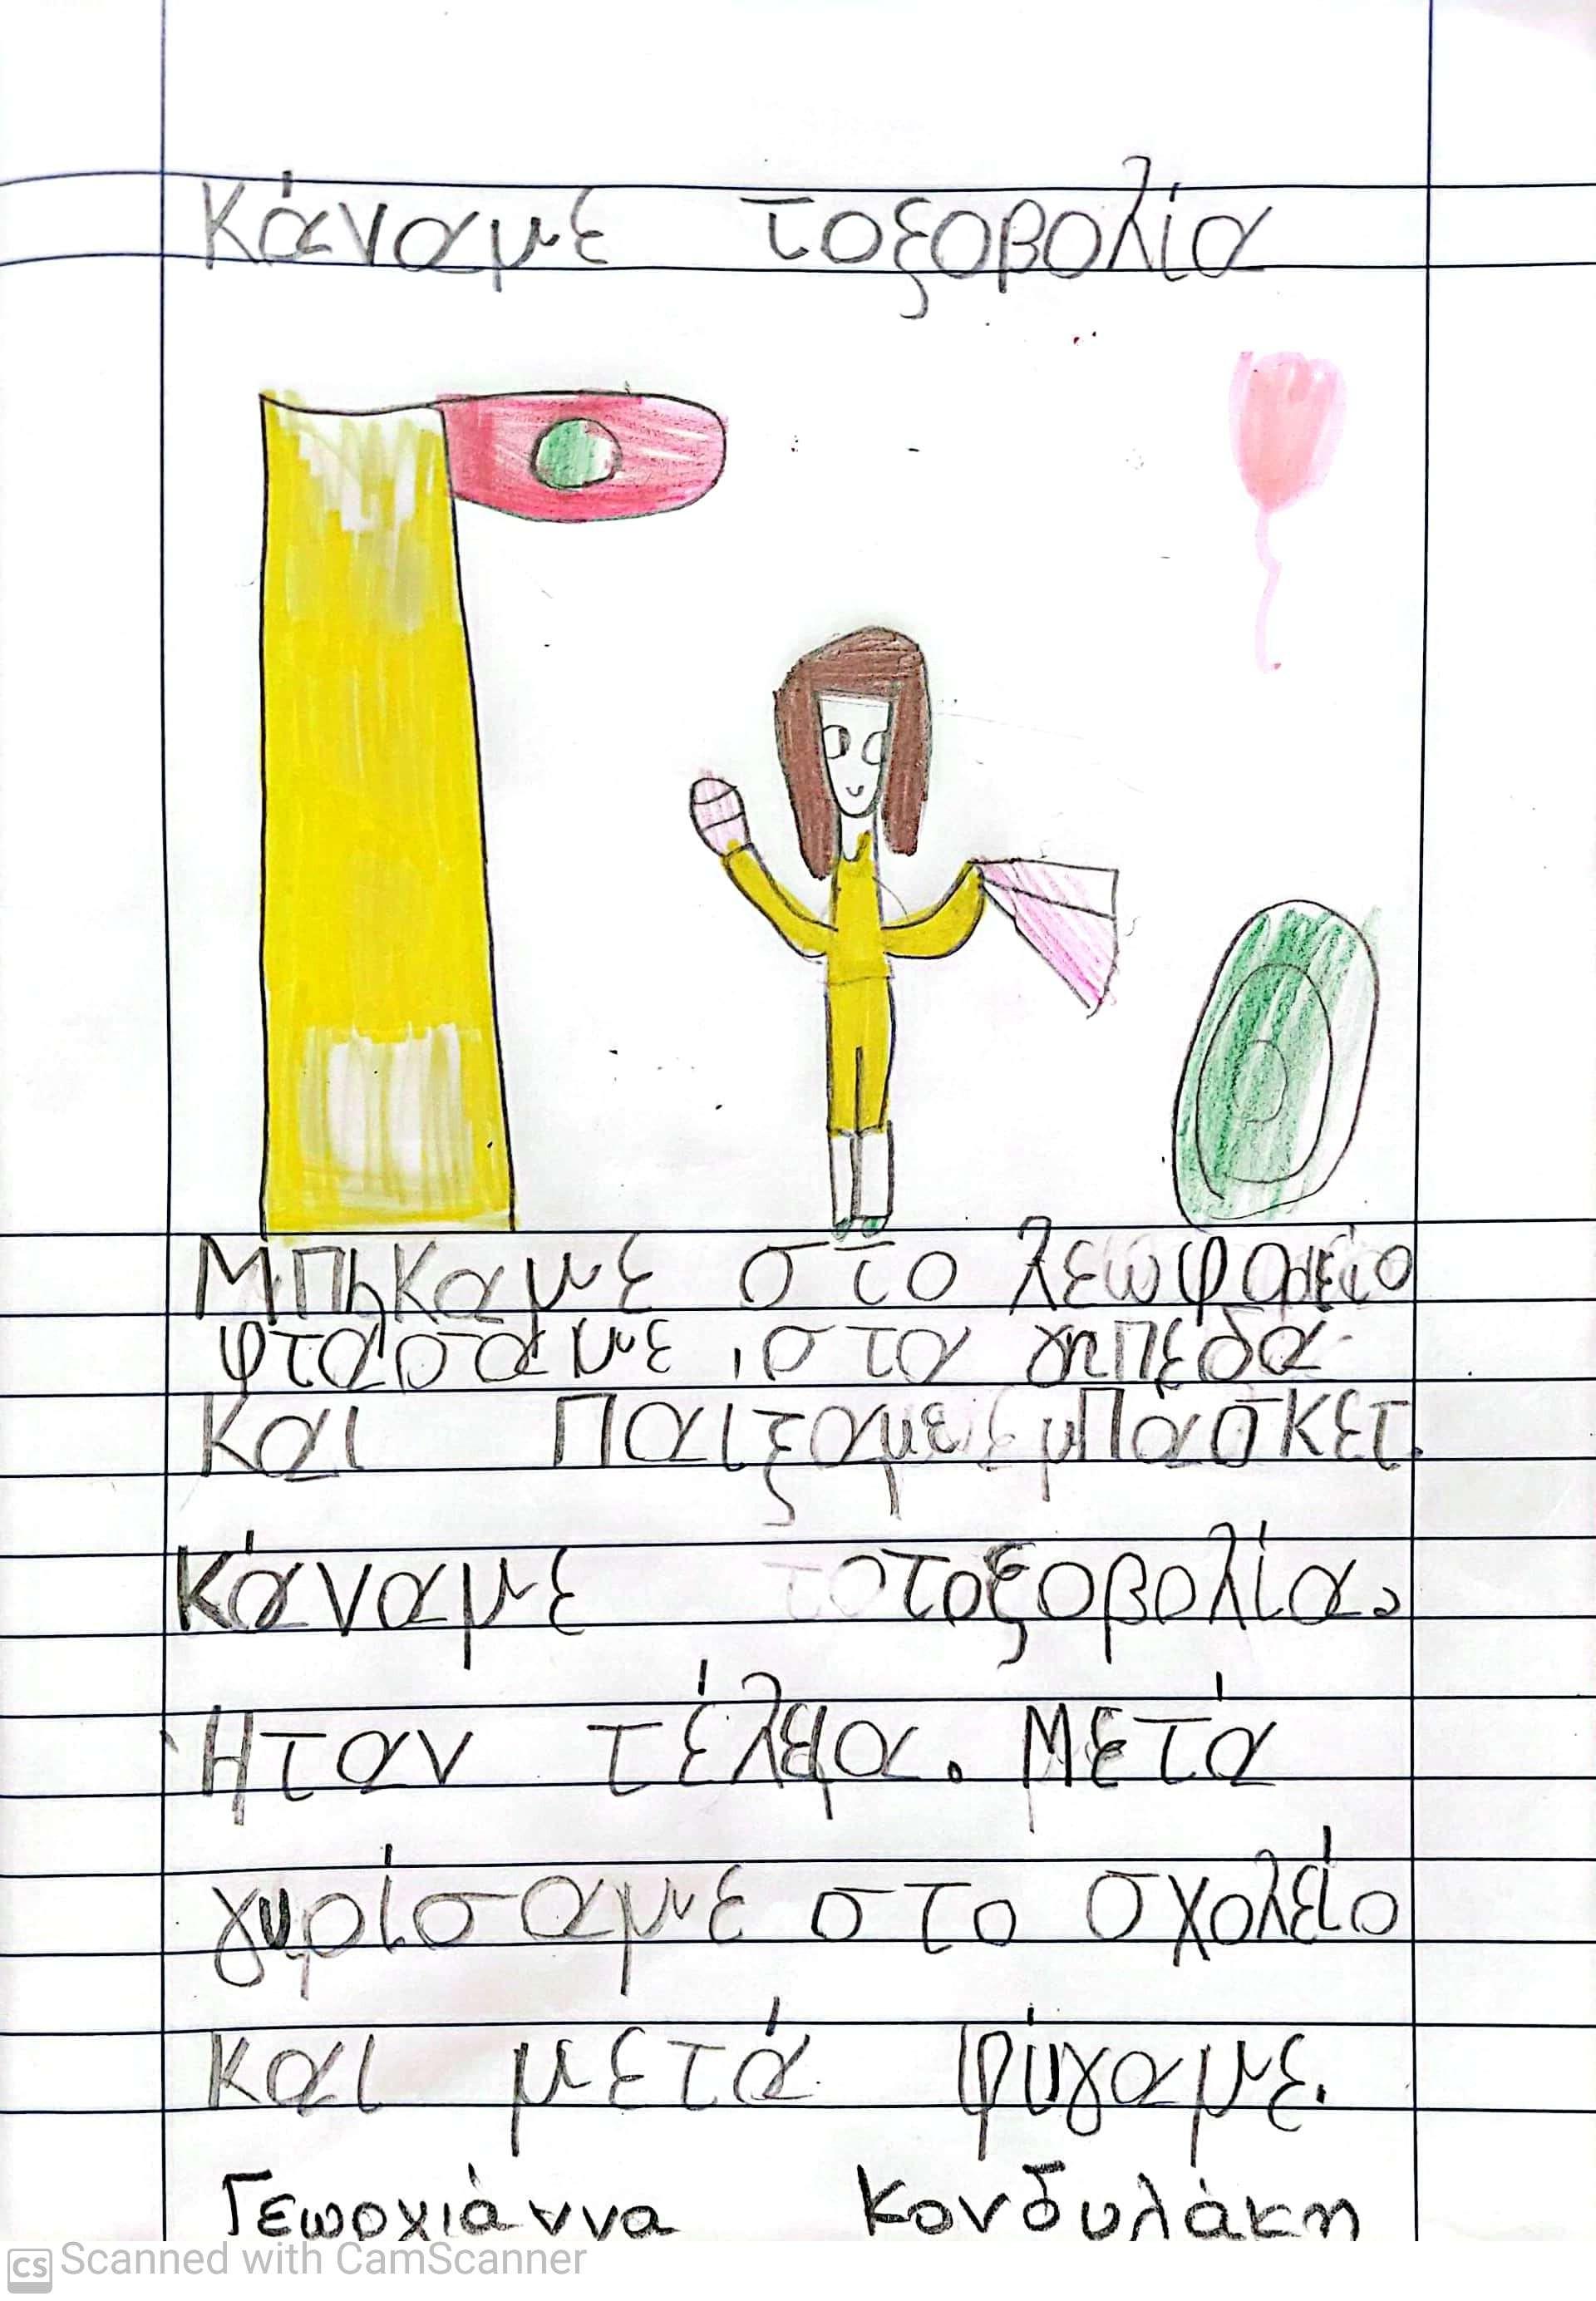 Κάναμε τοξοβολία
Μπήκαμε στο λεωφορείο
φτάσαμε, στα γηπεδα
και παιξαμε μπάσκετ.
Κάναμε τοξοβολία.
Ήταν τέλεια. Μετά
γυρίσαμε στο σχολείο
και μετά φύγαμε.
Γεωργιάννα Κονδυλάκη
CS Scanned with CamScanner